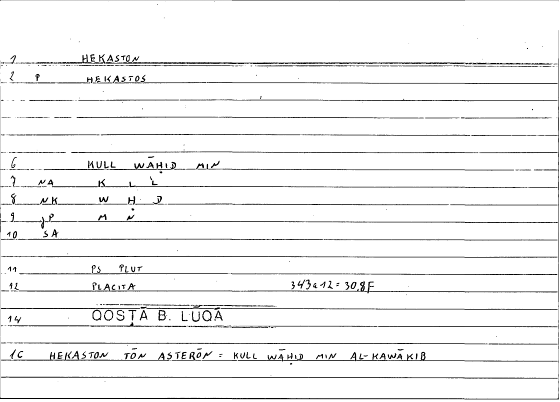 1 HEKASTON
2 P HEKASTOS
6 KULL WĀḤID MIN
7 NA K L L
8 NK W Ḥ D
9 JP M N
10 SA
11 PS PLUT
12 PLACITA 343a12 = 30,8F
14 QOSṬĀ B. LŪQĀ
16 HEKASTON TŌN ASTERŌN = KULL WĀḤID MIN AL-KAWĀKIB